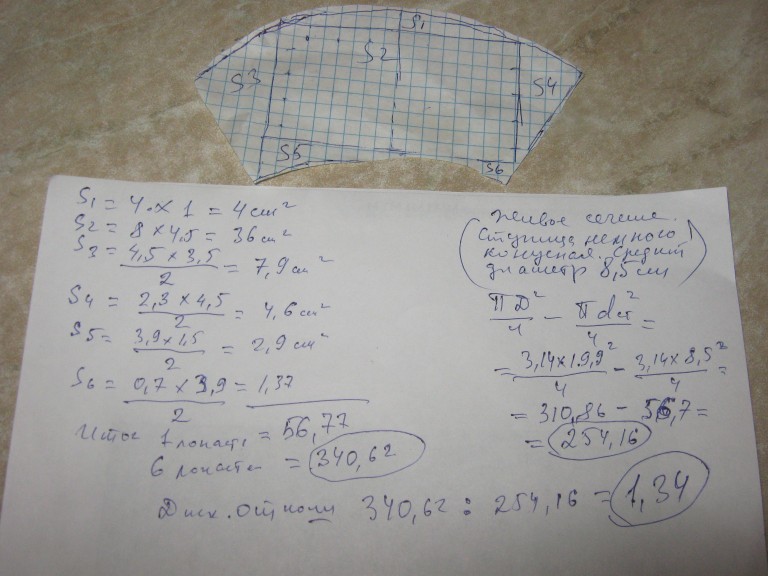 S1
S2
S3
S4
S5
S6
S1 = 4 × 1 = 4 cm²
S2 = 8 × 4,5 = 36 cm²
S3 = 4,5 × 3,5 / 2 = 7,9 cm²
S4 = 2,3 × 4,5 / 2 = 4,6 cm²
S5 = 3,9 × 1,5 / 2 = 2,9 cm²
S6 = 0,7 × 3,9 / 2 = 1,37
Итого 1 лопасть = 56,77
6 лопастей = 340,62
(Живое сечение.
Ступица немного
конусная. Средний
диаметр 8,5 см)
ПD² / 4 − Пdст² / 4 =
= 3,14×19,9² / 4 − 3,14×8,5² / 4 =
= 310,86 − 56,7 =
= 254,16
Диск. отнош 340,62 : 254,16 = 1,34